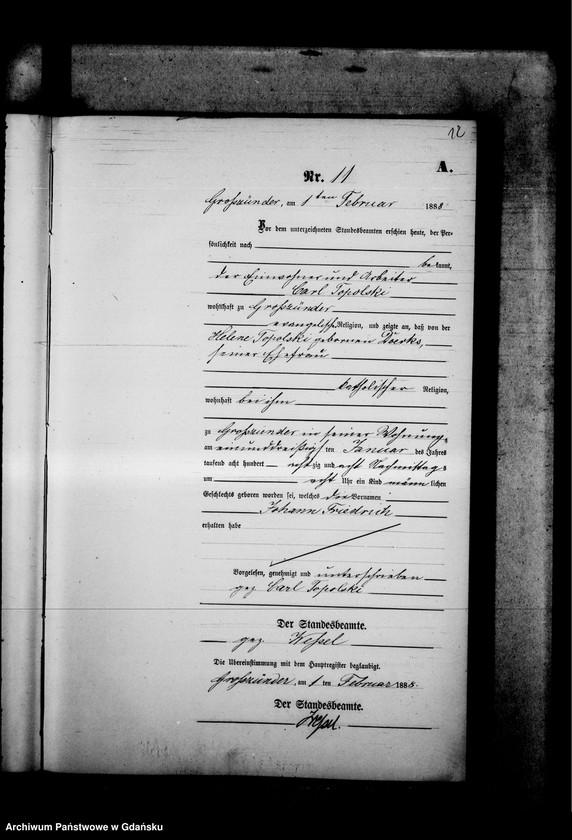 12
A.
Nr. 11
Großzünder, am 1ten Februar 1888.
Vor dem unterzeichneten Standesbeamten erschien heute, der Per-
sönlichkeit nach
bekannt,
der Einwohner und Arbeiter
Carl Topolski
wohnhaft zu Großzünder
evangelischer Religion, und zeigte an, daß von der
Helene Topolski gebornen Doerks,
seiner Ehefrau
katholischer Religion,
wohnhaft bei ihm
zu Großzünder in seiner Wohnung
am einunddreißigsten Januar des Jahres
tausend acht hundert achtzig und acht Nachmittags
um acht Uhr ein Kind männlichen
Geschlechts geboren worden sei, welches die Vornamen
Johann Friedrich
erhalten habe
Vorgelesen, genehmigt und unterschrieben
gez Carl Topolski
Der Standesbeamte.
gez Weßel
Die Übereinstimmung mit dem Hauptregister beglaubigt.
Großzünder, am 1 ten Februar 1888.
Der Standesbeamte.
Weßel.
Archiwum Państwowe w Gdańsku